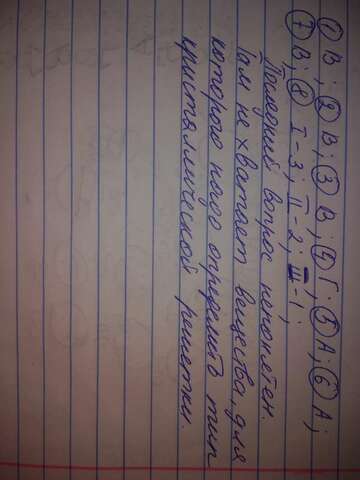 ① В; ② В; ③ В; ④ Г; ⑤ А; ⑥ А;
⑦ В; ⑧ I-3; II-2; III-1;
Последний вопрос непонятен.
Там не хватает вещества, для
которого надо определить тип
кристаллической решетки.